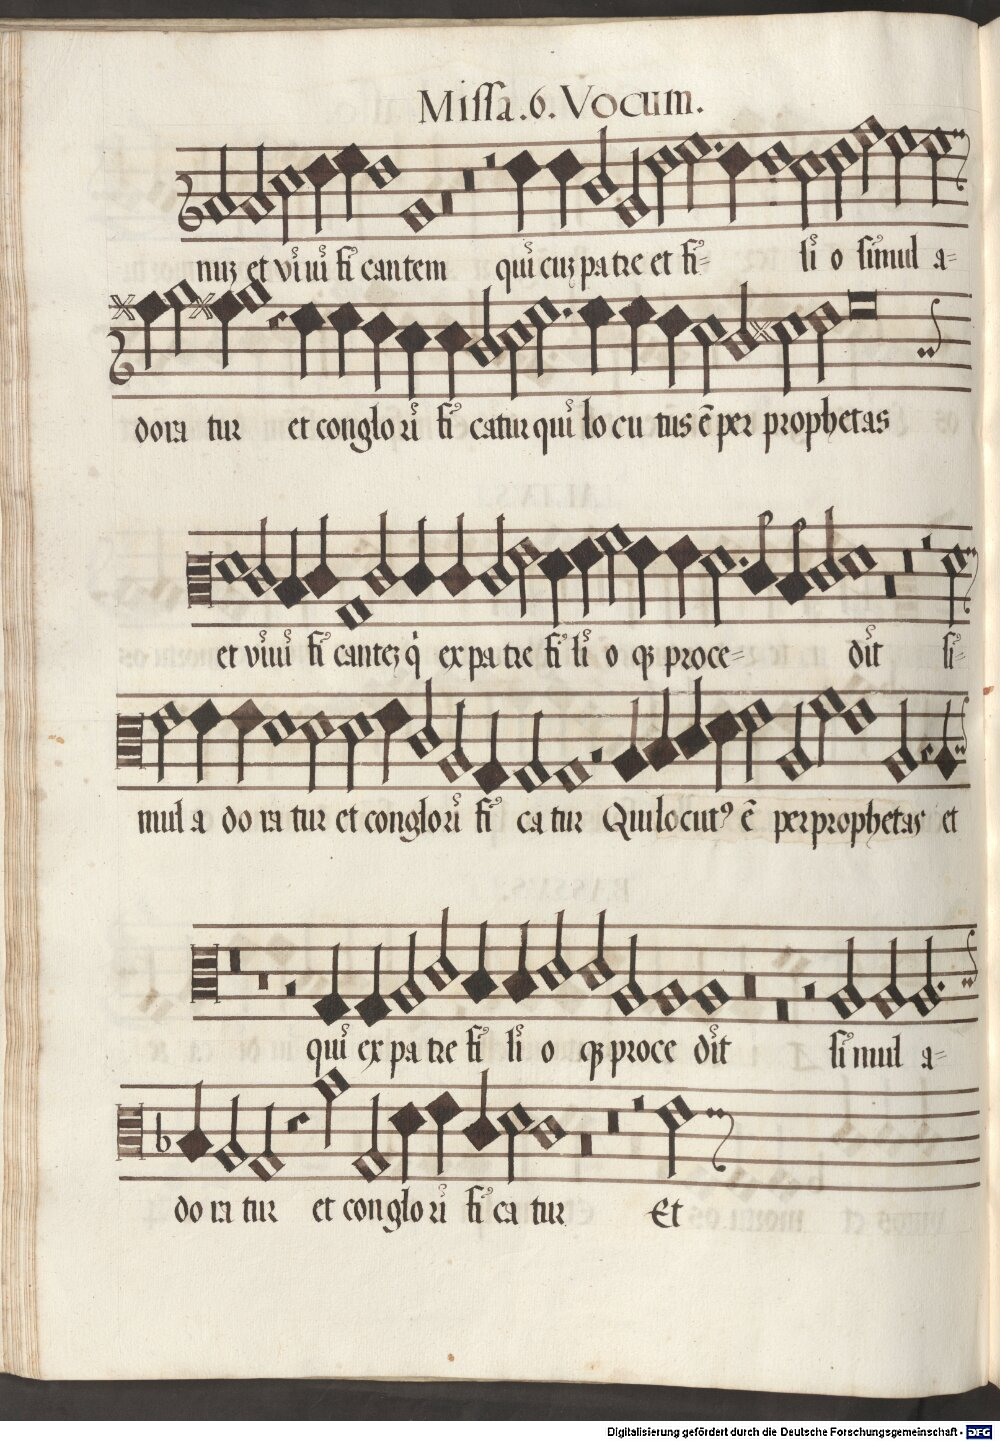 Missa.6.Vocum.
nuz et vi ui fi cantem qui cuz pa tre et fi= li o simul a=
dora tur et conglo ri fi catur qui lo cu tus ē per prophetas
et viui fi cantez q̇ ex pa tre fi li o qz proce= dit si=
mul a do ra tur et conglo ri fi ca tur Qui locut9 ē per prophetas et
qui ex pa tre fi li o qz proce dit simul a=
do ra tur et con glo ri fi ca tur Et
Digitalisierung gefördert durch die Deutsche Forschungsgemeinschaft - DFG